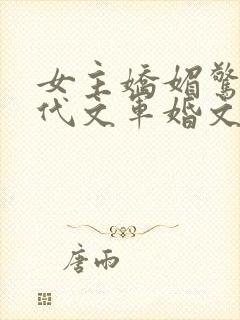 女主嬌媚驚
代文軍婚文
唐雨